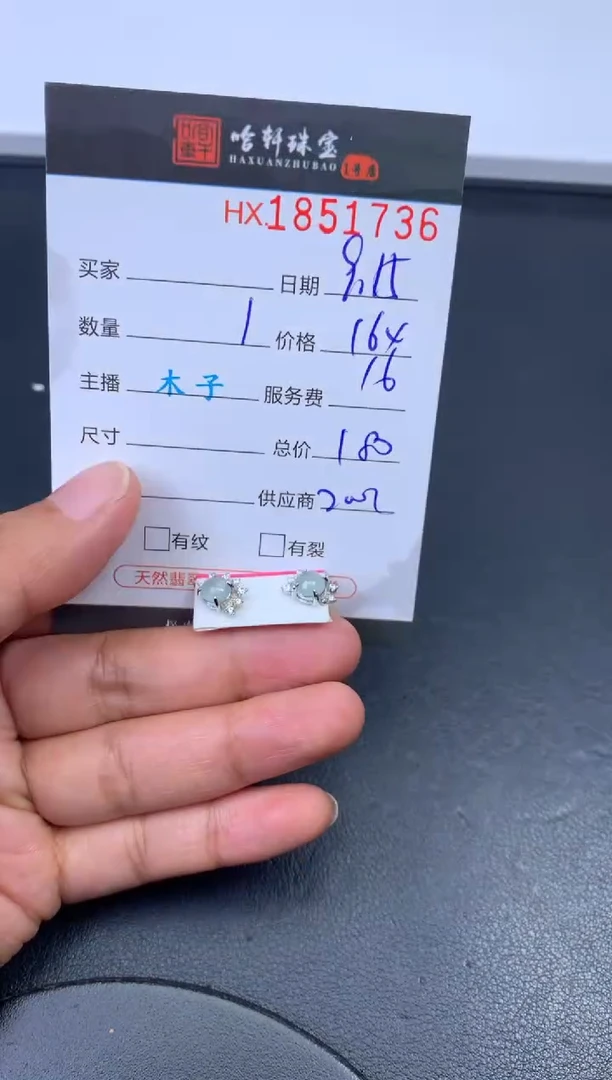 哈轩珠宝
HAXUANZHUBAO 1号店
HX.1851736
买家 日期 9.15
数量 1 价格 164
16
主播 木子 服务费
尺寸 总价 180
供应商
有纹 有裂
天然翡翠